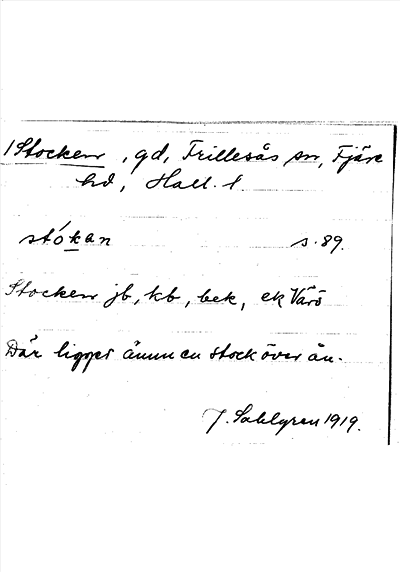 1 Stocken, gd, Frillesås sn, Fjäre
hd, Hall. l.
stókan s. 89.
Stocken jb, kb, bek, ek Värö
Där ligger ännu en stock över ån.
J. Sahlgren 1919.